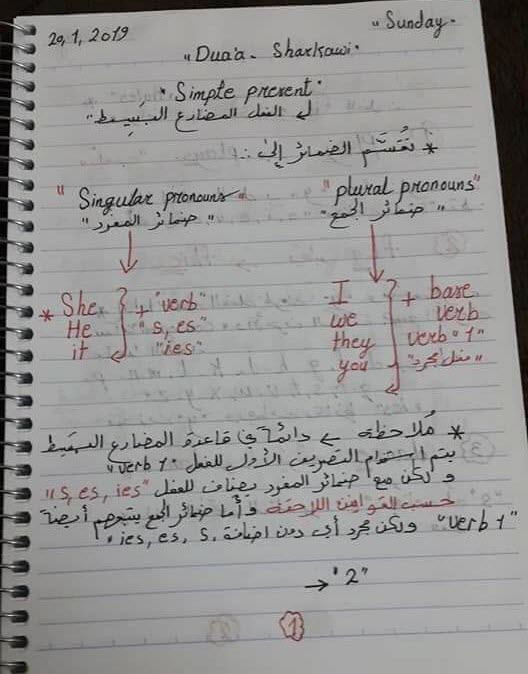 "Sunday"
20, 1, 2019
"Dua'a - Sharkawi"
"Simple present"
"الفعل المضارع البَسِيط"
* تُقسَّم الضمائر إلى :-
"Singular pronouns" "plural pronouns"
"ضمائر المفرد" "ضمائر الجمع"
* She + "verb" I + base
He "s, es" we verb
it "ies" they verb "1"
you "فعل مجرد"
* مُلاحظة دائمًا في قاعدة المضارع البسيط
يتم استخدام التصريف الأول للفعل "verb 1"
ولكن مع ضمائر المفرد يضاف للفعل "s, es, ies"
حسب القوانين اللاحقة وأما ضمائر الجمع يتبعهم أيضًا
"verb 1" ولكن مجرد أي دون اضافة ies, es, s.
→ "2"
1